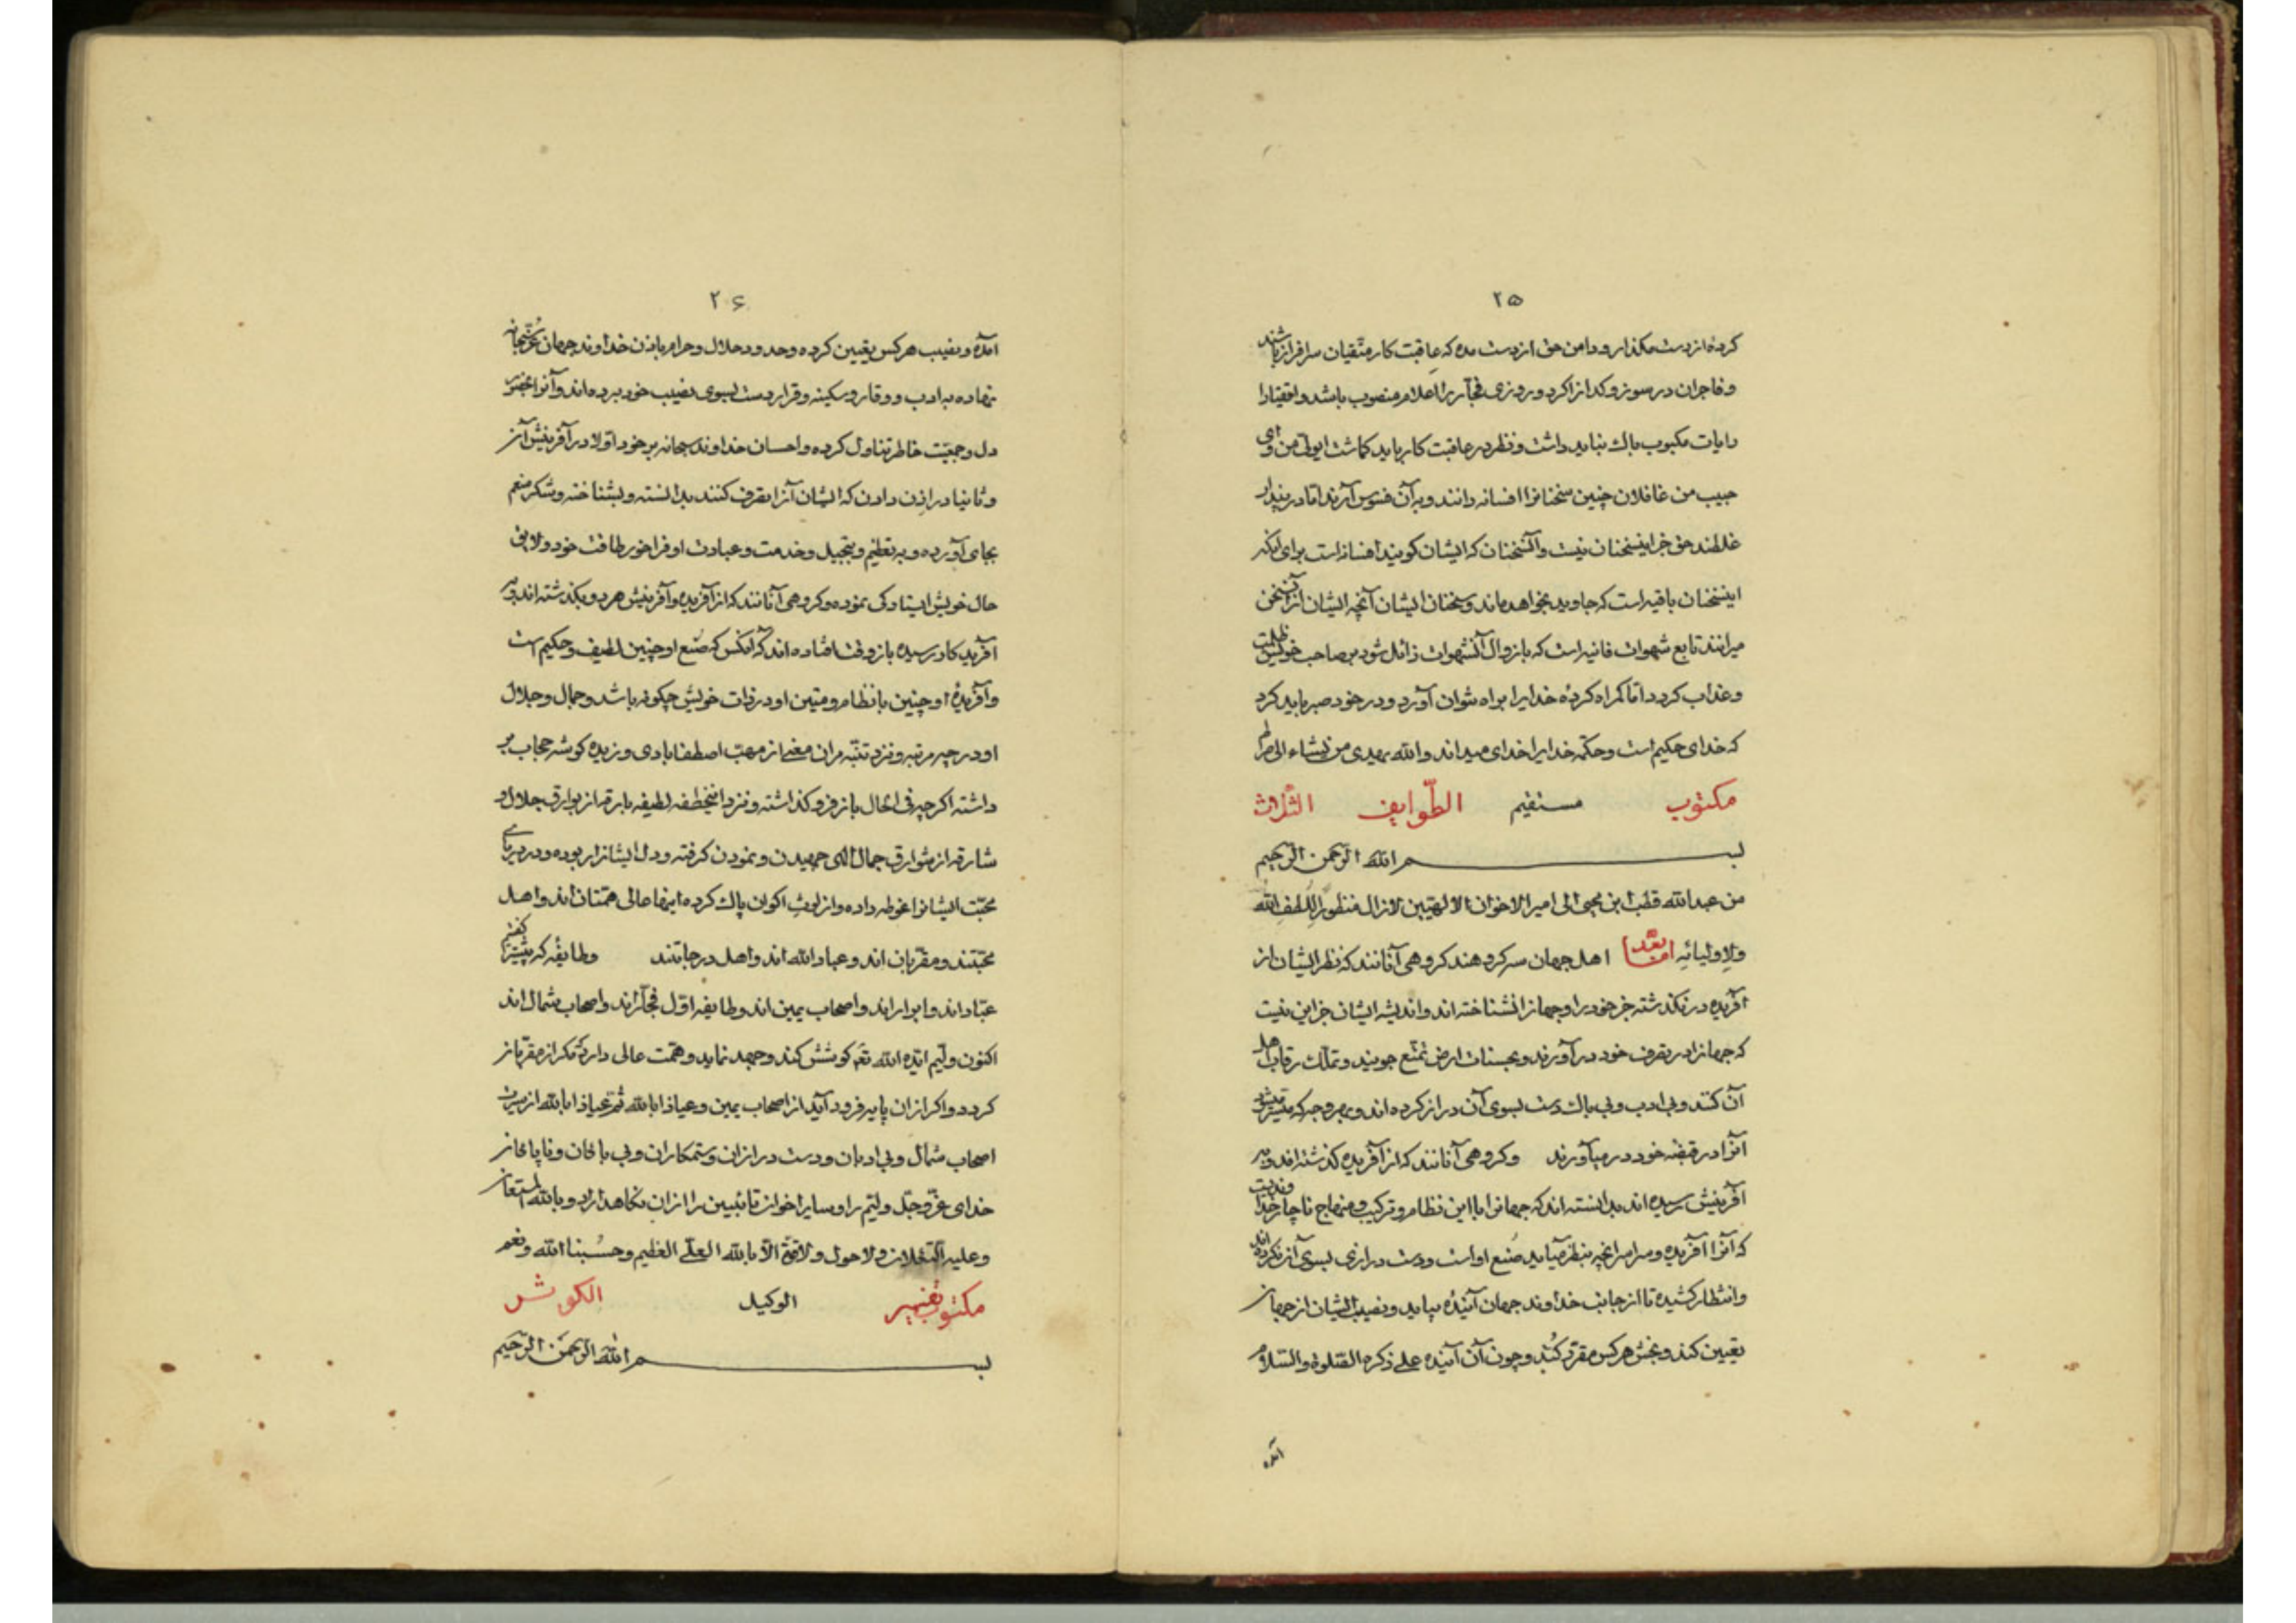 ۲۵
کرده از دست مگذار و دامن حق از دست مده که عاقبت کار متّقیان سرافراز باشند
و فاجران در سوز و کداز اکرد و روزی فجّار را اعلام منصوب باشد و اتقیا را
رایات مکبوب باک نباید داشت و نظر در عاقبت کار باید کماشت ای ولیّ من و ای
حبیب من غافلان چنین سخنانرا افسانه دانند و به آن فسوس آرند امّا در پندار
غلطند حق جز اینسخنان نیست و آنسخنان که ایشان کویند افسانه است برای آنکه
اینسخنان باقیه است که جاوید بخواهد ماند و سخنان ایشان آنچه ایشان از آن سخن
میرانند تابع شهوات فانیه است که بازوال آنشهوات زائل شود بر صاحب خویش ظلمت
و عذاب کردد امّا کمراه کردهٔ خدایرا براه نتوان آورد و در خود صبر باید کرد
که خدای حکیم است و حکمة خدایرا خدای میداند والله یهدی من یشاء الی صراط
مکتوب مستقیم الطّوایف الثّلاث
بسم الله الرّحمن الرّحیم
من عبدالله قطب ابن محیی الی امیر الاخوان الالهیّین لازال منظوراً للطف الله
ولاولیائه امّا بعد اهل جهان سه کروهند کروهی آنانند که نظر ایشان از
آفریده در نکذشته جز خود را و جهانرا نشناخته اند و اندیشه ایشان جز این نیست
که جهانرا در تصرف خود درآورند و بحسنات ارض تمتّع جویند و تملّک رقاب اهل
آن کنند و بی ادب و بی باک دست بسوی آن دراز کرده اند و بهر وجه که میسّر شد
آنرا در قبضه خود در میآورند و کروهی آنانند که از آفریده کذشته اند و به
آفرینش رسیده اند بدانسته اند که جهانرا با این نظام و ترکیب و منهاج ناچار خداوندیست
که آنرا آفریده و مر امرا نچه بنظر میآید صُنع اوست و دست درازی بسوی آن نکرده اند
و انتظار کشیده تا از جانب خداوند جهان آینده بیاید و نصیب ایشان از جهان
تعیین کند و بخش هر کس مقرّر کند و چون آن آینده علی ذکره الصّلوة والسّلام
آمده
۲۶
آمده و نصیب هر کس تعیین کرده و حدود حلال و حرام باذن خداوند جهان عزّ سبحانه
نهاده به ادب و وقار و سکینه و قرار دست بسوی نصیب خود برده اند و آنرا بحضور
دل و جمعیّت خاطر تناول کرده و احسان خداوند سبحانه بر خود اوّلا در آفرینش آن
و ثانیا در اذن دادن که ایشان آنرا تصرف کنند بدانسته و بشناخته و شکر منعم
بجای آورده و به تعظیم و تبجیل و خدمت و عبادت او فراخور طاقت خود و لایق
حال خویش ایستادکی نموده و کروهی آنانند که از آفریده و آفرینش هر دو بکذشته اند و به
آفریدکار رسیده باز وقت افتاده اند که آنکس که صُنع او چنین لطیف و حکیم است
و آفریدهٔ او چنین با نظام و متین او در ذات خویش چکونه باشد و جمال و جلال
او در چه مرتبه و نزد تنبّه مر ان معنی از مهبّ اصطفا بادی وزیده کوشه حجاب بر
داشته اکرچه فی الحال باز فرو کذاشته و نزد اینخطفه لطیفه بارقه از بوارق جلال و
شارقه از شوارق جمال الهی جهیدن و نمودن کرفته و دل ایشانرا ربوده و در دریای
محبّت ایشانرا غوطه داده و از لوث اکوان پاک کرده اینها عالی همّتان اند و اهل
محبّتند و مقرّبان اند و عباد الله اند و اهل درجاتند و طایفهٔ که پیشتر کفتیم
عبّاد اند و ابرار اند و اصحاب یمین اند و طایفه اوّل فجّار اند و اصحاب شمال اند
اکنون ولیّم ایّده الله تعم کوشش کند و جهد نماید و همّت عالی دارد مکر از مقرّبان
کردد و اکر از ان پایه فرود آید از اصحاب یمین و عیاذا بالله ثم عیاذا بالله از سیرت
اصحاب شمال و بی ادبان و دست درازان و ستمکاران و بی باکان و ناپاکان
خدای عزّ و جلّ ولیّم را و سایر اخوان تائبین را از ان نکاهداراد و بالله المستعان
و علیه التکلان و لاحول و لاقوّة الّا بالله العلّی العظیم و حسبنا الله و نعم
مکتوب الوکیل الکو
بسم الله الرّحمن الرّحیم